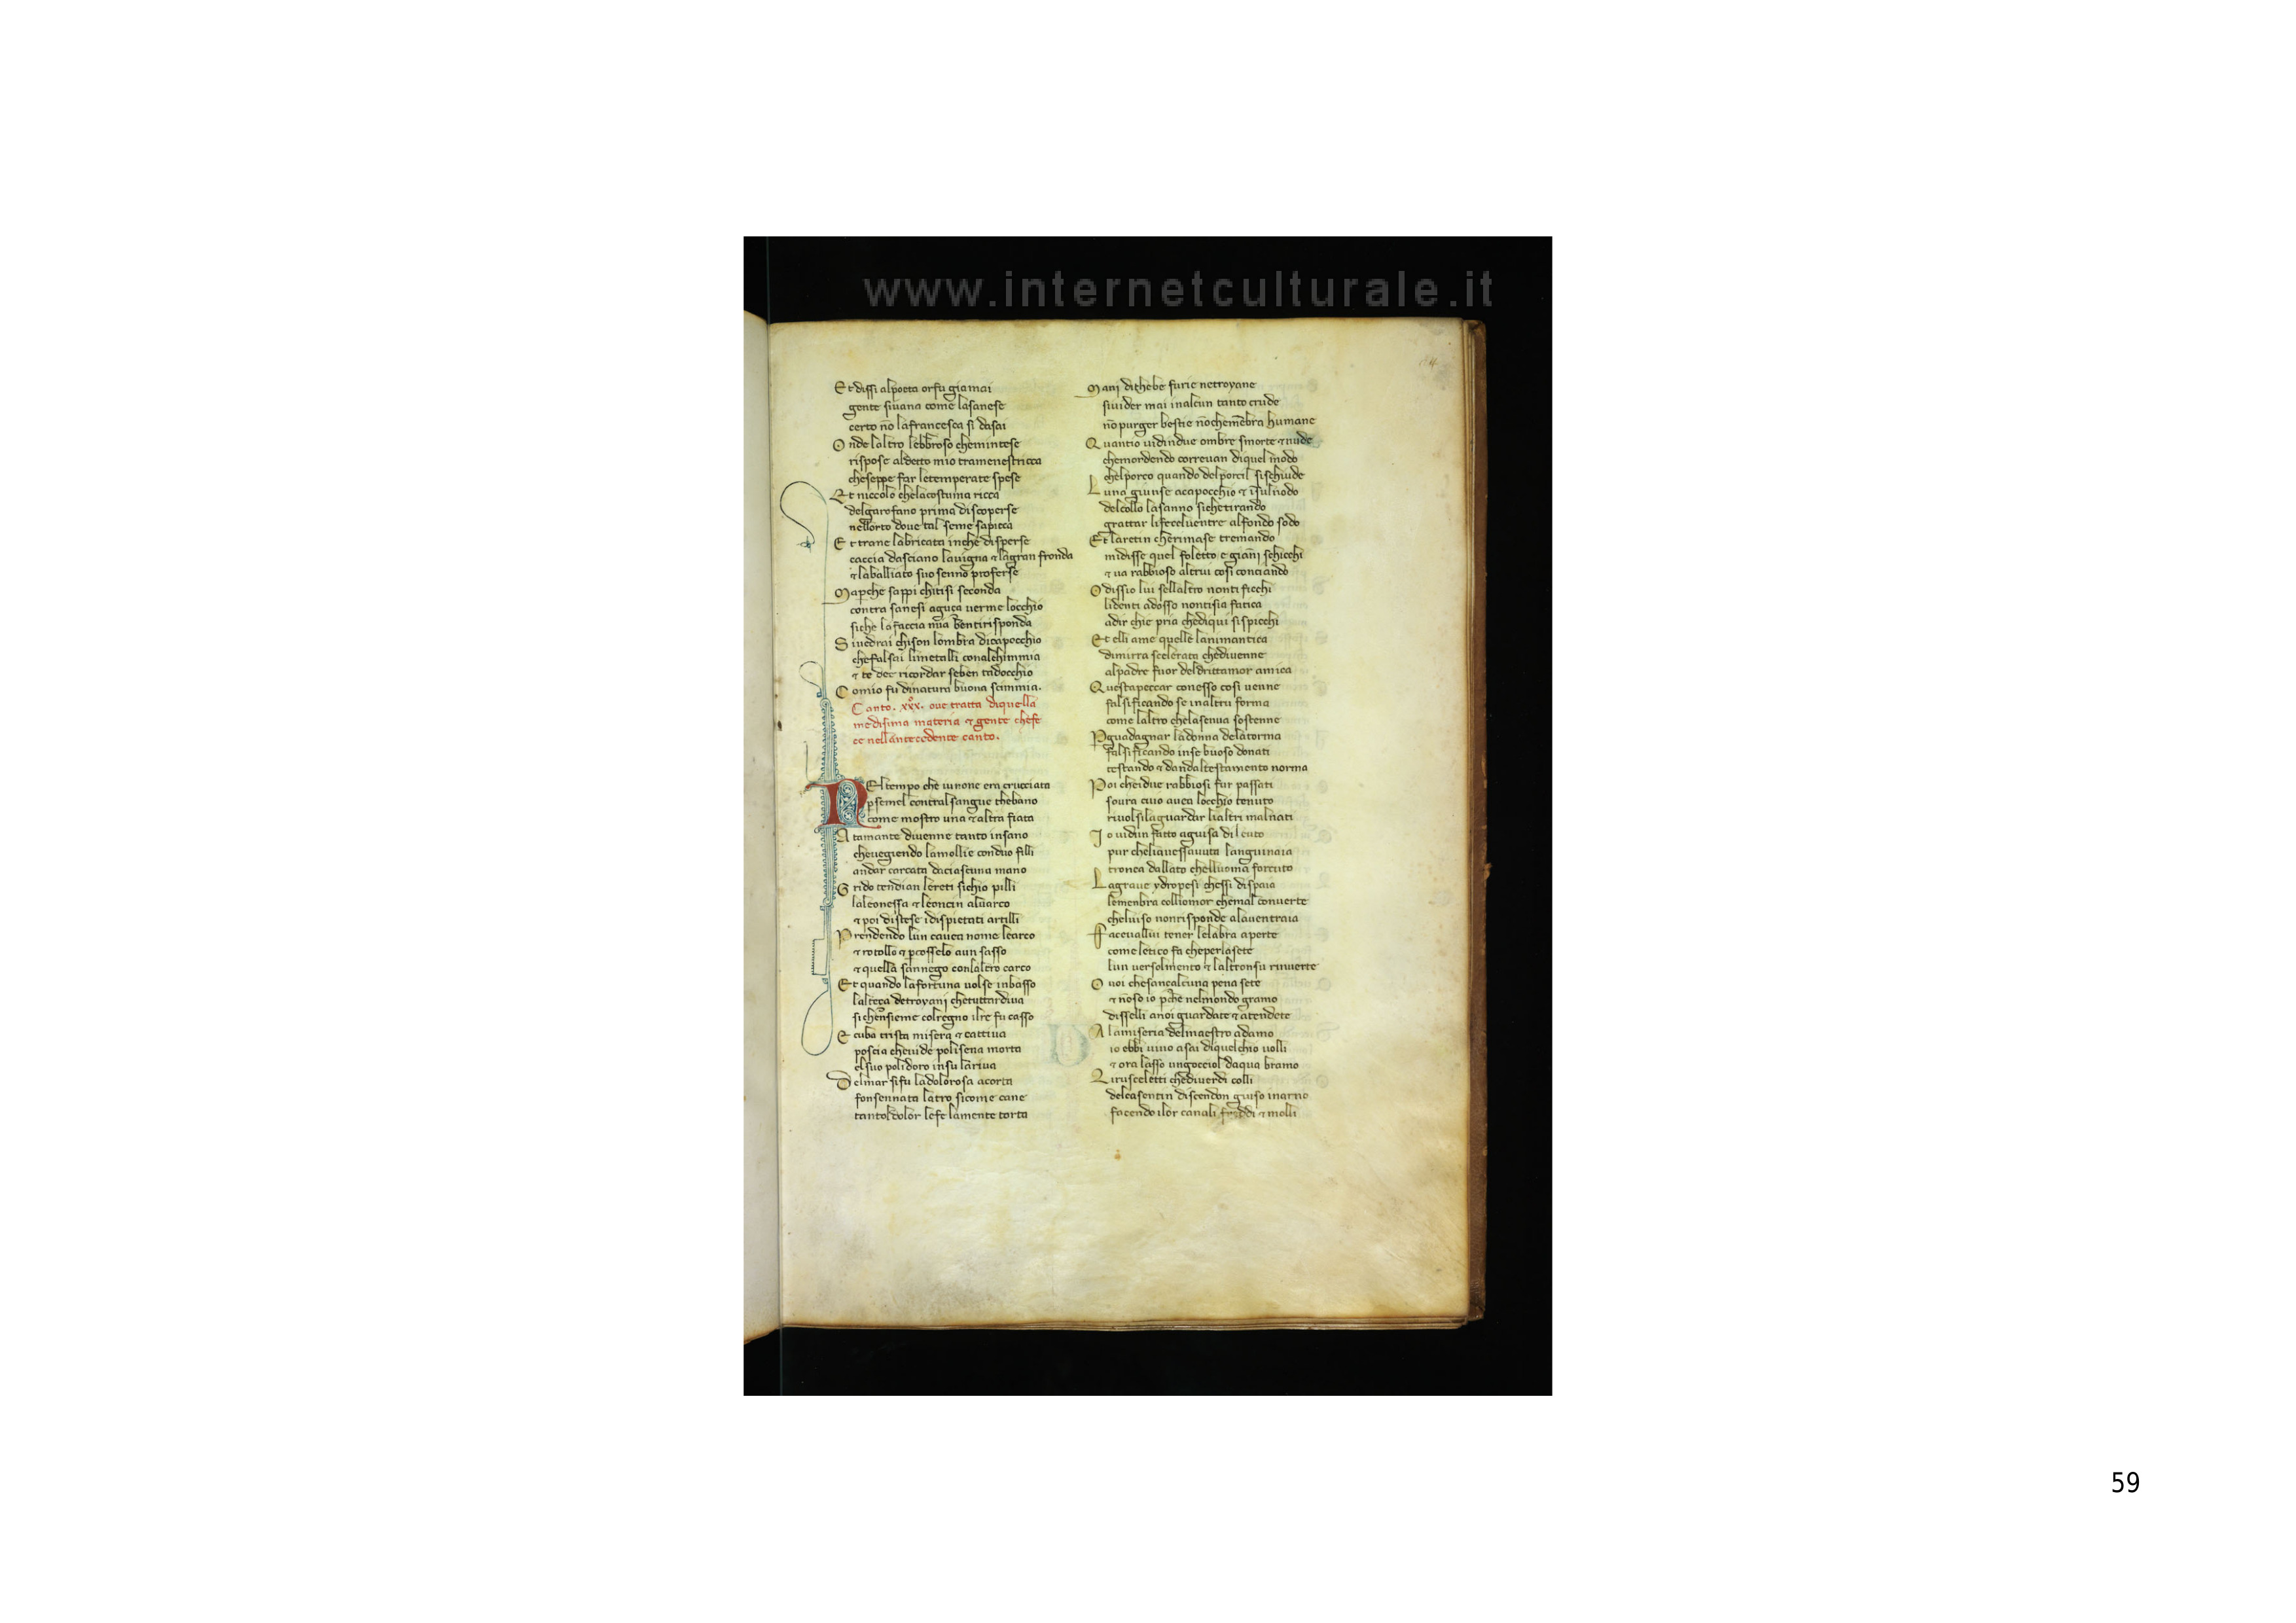 www.internetculturale.it
Et dissi alpoeta or fu giamai
gente siuana come lasanese
certo nō lafrancesca si dasai
Onde laltro lebbroso chemintese
rispose aldetto mio tramenestricca
cheseppe far letemperate spese
Et niccolo chelacostuma ricca
delgarofano prima discoperse
nellorto doue tal seme sapicca
Et trane labricata inche disperse
caccia dasciano lauigna & lagran fronda
& laballiato suo senno proferse
Maperche sappi chitisi seconda
contra sanesi aguça uerme locchio
siche lafaccia mia bentirisponda
Siuedrai chison lombra dicapocchio
chefalsai limetalli conalchimmia
& te dee ricordar seben tadocchio
Comio fu dinatura buona scimmia.
Canto. xxxº. oue tratta diquella
medisima materia & gente chefe
ce nellantecedente canto.
NEl tempo che iunone era crucciata
psemel contral sangue thebano
come mostro una & altra fiata
Atamante diuenne tanto insano
cheuegiendo lamollie conduo filli
andar carcata daciascuna mano
Grido tendian lereti sichio pilli
laleonessa & leoncin aluarco
& poi distese idispietati artilli
Prendendo lun cauea nome learco
& rotollo & pcosselo aun sasso
& quella sannego conlaltro carco
Et quando lafortuna uolse inbasso
lalteça detroyani chetuttardiua
sichēnsieme colregno ilre fu casso
Ecuba trista misera & cattiua
poscia cheuide polisena morta
elsuo polidoro insu lariua
Delmar sifu ladolorosa acorta
forsennata latro sicome cane
tantoldolor lefe lamente torta
Mani dithebe furie netroyane
siuider mai inalcun tanto crude
nō punger bestie nōchemēbra humane
Quantio uidindue ombre smorte & nude
chemordendo correuan diquel modo
chelporco quando delporcil sischiude
Luna giunse acapocchio & īsulnodo
delcollo lasanno sichetirando
grattar lifeceluentre alfondo sodo
Et laretin cherimase tremando
midisse quel foletto e gianni schicchi
& ua rabbioso altrui cosi conciando
O dissio lui sellaltro nonti ficchi
lidenti adosso nontisia fatica
adir chie pria chediqui sispicchi
Et elli ame quelle lanimantica
dimirra scelerata chediuenne
alpadre fuor deldrittamor amica
Questapeccar conesso cosi uenne
falsificando se inaltrui forma
come laltro chelasenua sostenne
Pguadagnar ladonna delatorma
falsificando inse buoso donati
testando & dandaltestamento norma
Poi cheidue rabbiosi fur passati
soura cuio auea locchio tenuto
riuolsilaguardar lialtri malnati
Io uidun fatto aguisa dileuto
pur cheliauessauuta languinaia
tronca dallato chelluoma forcuto
Lagraue ydropesi chessi dispaia
lemenbra colliomor chemal conuerte
cheluiso nonrisponde alauentraia
Faceuallui tener lelabra aperte
come letico fa cheperlasete
lun uersolmento & laltronsu rinuerte
O uoi chesançalcuna pena sete
& nōso io pche nelmondo gramo
disselli anoi guardate & atendete
Alamiseria delmaestro adamo
io ebbi uiuo asai diquelchio uolli
& ora lasso ungocciol daqua bramo
Liruscelletti chediuerdi colli
delcasentin discendon giuso inarno
facendo ilor canali freddi & molli
59